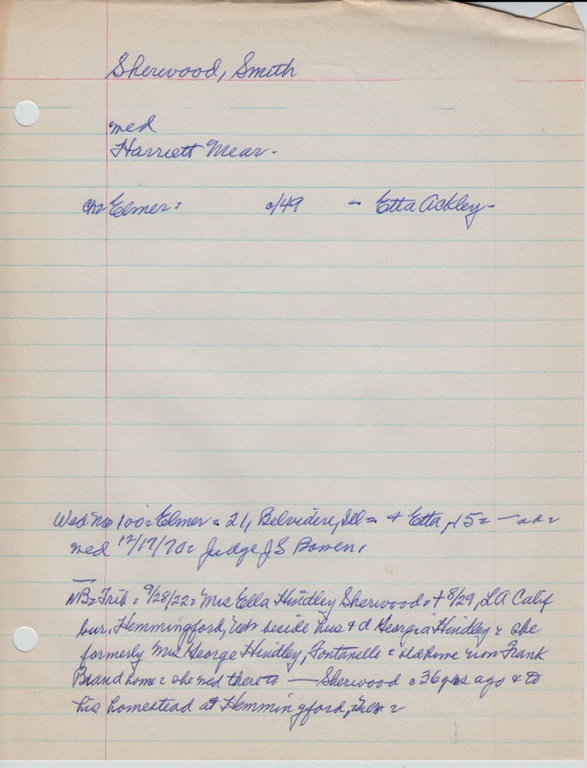 Sherwood, Smith
wed
Harriett Mear.
ch= Elmer= c/49 - Etta Ackley-
Wed No 100= Elmer= 21, Belvidere, Ill= + Etta, 15=
wed 12/17/70= Judge J S Bowen.
NB= Trib= 9/28/22= Mrs Ella Hindley Sherwood= + 8/29, LA Calif
bur. Hemmingford, beside hus + d Georgia Hindley= she
formerly Mrs George Hindley, Fontanelle= old home Frank
Brand home= she wed there to — Sherwood c 36 yrs ago + to
his homestead at Hemmingford,